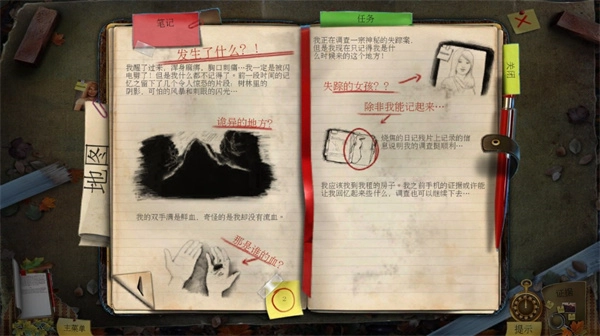 笔记
发生了什么？！
我醒了过来，浑身麻痹，胸口刺痛…我一定是被闪
电霹了！但是我什么都不记得了。前一段时间的记
忆之留下了几个令人惊恐的片段：树林里的
阴影，可怕的风暴和刺眼的闪光…
诡异的地方？
我的双手满是鲜血，奇怪的是我却没有流血。
那是谁的血？
2
地图
主菜单
任务
我正在调查一宗神秘的失踪案，
但是我现在只记得我是什
么时候来的这个地方！
失踪的女孩？？
除非我能记起来…
烧焦的日记残片上记录的信
息说明我的调查挺顺利…
我应该找到我租的房子。我之前手机的证据或许能
让我回忆起来些什么，调查也可以继续下去…
关闭
提示